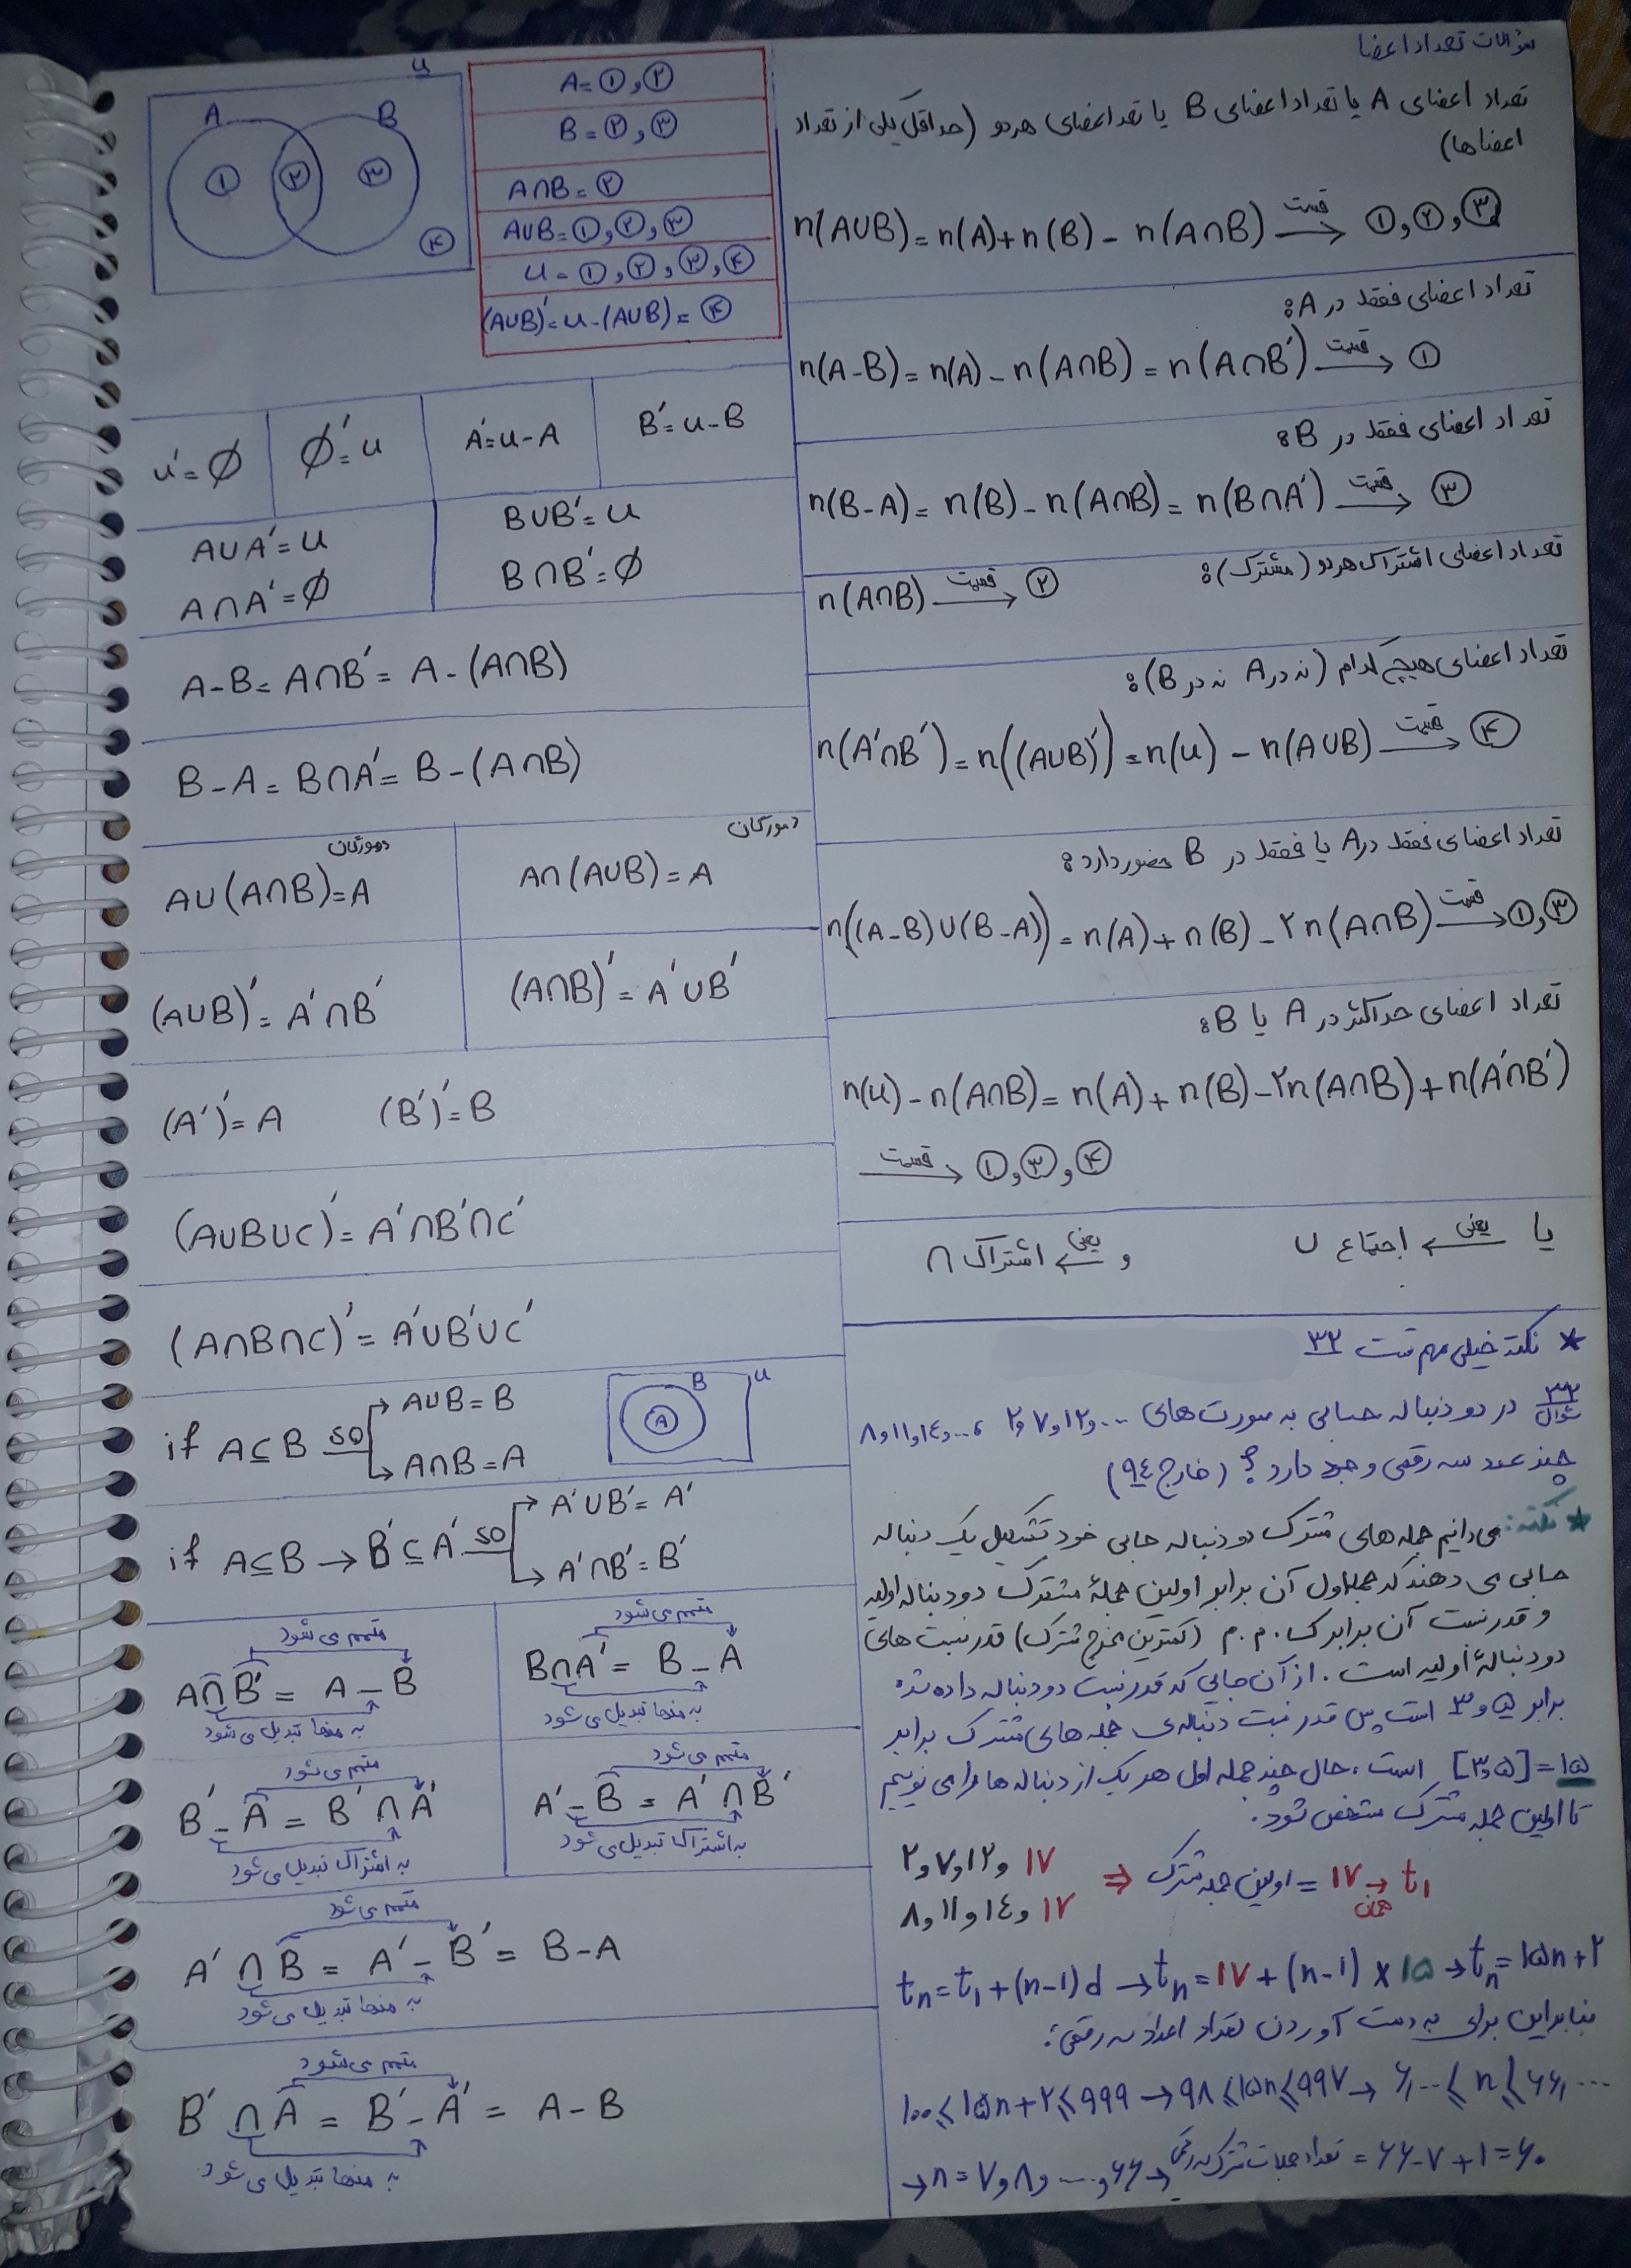 سؤالات تعداد اعضا
تعداد اعضای A یا تعداد اعضای B یا تعداد اعضای هر دو (حداقل یکی از تعداد
اعضاها)
n(A∪B) = n(A) + n(B) - n(A∩B) قسمت → ①,②,③
تعداد اعضای فقط در A:
n(A-B) = n(A) - n(A∩B) = n(A∩B′) قسمت → ①
تعداد اعضای فقط در B:
n(B-A) = n(B) - n(A∩B) = n(B∩A′) قسمت → ③
تعداد اعضای اشتراک هر دو (مشترک):
n(A∩B) قسمت → ②
تعداد اعضای هیچ کدام (نه در A نه در B):
n(A′∩B′) = n((A∪B)′) = n(u) - n(A∪B) قسمت → ④
تعداد اعضای فقط در A یا فقط در B حضور دارد:
n((A-B)∪(B-A)) = n(A) + n(B) - ۲n(A∩B) قسمت → ①,③
تعداد اعضای حداکثر در A یا B:
n(u) - n(A∩B) = n(A) + n(B) - ۲n(A∩B) + n(A′∩B′)
قسمت → ①,③,④
یا یعنی ← اجتماع ∪
و یعنی ← اشتراک ∩
★ نکته خیلی مهم تست ۳۲
سؤال ۳۲ در دو دنباله حسابی به صورت های ...,۲,۷,۱۲ ، ...,۸,۱۱,۱٤
چند عدد سه رقمی وجود دارد؟ (خارج ۹٤)
★ نکته: می دانیم جمله های مشترک دو دنباله حسابی خود تشکیل یک دنباله
حسابی می دهند که جمله اول آن برابر اولین جملهٔ مشترک دو دنباله اولیه
و قدرنسبت آن برابر ک.م.م (کمترین مخرج مشترک) قدرنسبت های
دو دنبالهٔ اولیه است. از آن جایی که قدرنسبت دو دنباله داده شده
برابر ۵ و ۳ است پس قدر نسبت دنباله ی جمله های مشترک برابر
[۳,۵]=۱۵ است، حال چند جمله اول هر یک از دنباله ها را می نویسیم
تا اولین جمله مشترک مشخص شود.
۲,۷,۱۲,۱۷
۸,۱۱,۱٤,۱۷
⇒ اولین جمله مشترک = ۱۷ همان → t₁
tₙ = t₁ + (n-۱)d → tₙ = ۱۷ + (n-۱) × ۱۵ → tₙ = ۱۵n+۲
بنابراین برای به دست آوردن تعداد اعداد سه رقمی:
۱۰۰ ⩽ ۱۵n+۲ ⩽ ۹۹۹ → ۹۸ ⩽ ۱۵n ⩽ ۹۹۷ → ۶,... ⩽ n ⩽ ۶۶,...
→ n = ۷,۸,...,۶۶ → تعداد جملات مشترک سه رقمی = ۶۶-۷+۱=۶۰
u
A B
① ② ③
④
A = ①,②
B = ②,③
A∩B = ②
A∪B = ①,②,③
u = ①,②,③,④
(A∪B)′ = u - (A∪B) = ④
u′ = ∅
∅′ = u
A′ = u - A
B′ = u - B
A∪A′ = u
A∩A′ = ∅
B∪B′ = u
B∩B′ = ∅
A-B = A∩B′ = A-(A∩B)
B-A = B∩A′ = B-(A∩B)
دمورگان
A∪(A∩B) = A
دمورگان
A∩(A∪B) = A
(A∪B)′ = A′∩B′
(A∩B)′ = A′∪B′
(A′)′ = A (B′)′ = B
(A∪B∪C)′ = A′∩B′∩C′
(A∩B∩C)′ = A′∪B′∪C′
if A⊆B so
→ A∪B = B
→ A∩B = A
A B u
if A⊆B → B′⊆A′ so
→ A′∪B′ = A′
→ A′∩B′ = B′
متمم می شود
A∩B′ = A - B
به منها تبدیل می شود
متمم می شود
B∩A′ = B - A
به منها تبدیل می شود
متمم می شود
B′ - A = B′ ∩ A′
به اشتراک تبدیل می شود
متمم می شود
A′ - B = A′ ∩ B′
به اشتراک تبدیل می شود
متمم می شود
A′ ∩ B = A′ - B′ = B-A
به منها تبدیل می شود
متمم می شود
B′ ∩ A = B′ - A′ = A-B
به منها تبدیل می شود